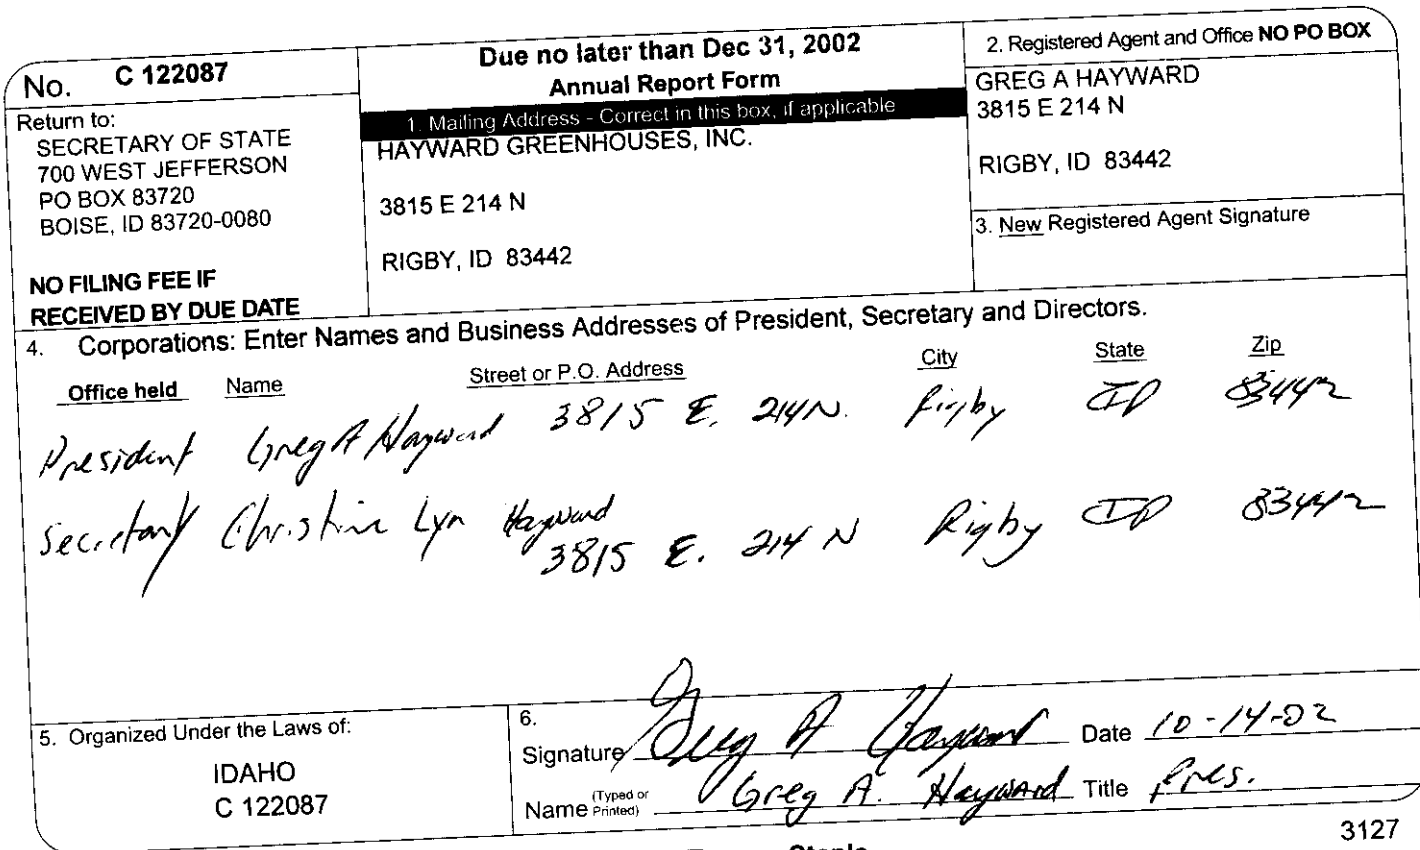 No. C 122087
Return to:
SECRETARY OF STATE
700 WEST JEFFERSON
PO BOX 83720
BOISE, ID 83720-0080
NO FILING FEE IF
RECEIVED BY DUE DATE
Due no later than Dec 31, 2002
Annual Report Form
1. Mailing Address - Correct in this box, if applicable
HAYWARD GREENHOUSES, INC.
3815 E 214 N
RIGBY, ID 83442
2. Registered Agent and Office NO PO BOX
GREG A HAYWARD
3815 E 214 N
RIGBY, ID 83442
3. New Registered Agent Signature
4. Corporations: Enter Names and Business Addresses of President, Secretary and Directors.
Office held Name Street or P.O. Address City State Zip
President Greg A Hayward 3815 E. 214 N. Rigby ID 83442
Secretary Christine Lyn Hayward
3815 E. 214 N Rigby ID 83442
5. Organized Under the Laws of:
IDAHO
C 122087
6.
Signature Greg A Hayward Date 10-14-02
Name (Typed or Printed) Greg A. Hayward Title Pres.
3127